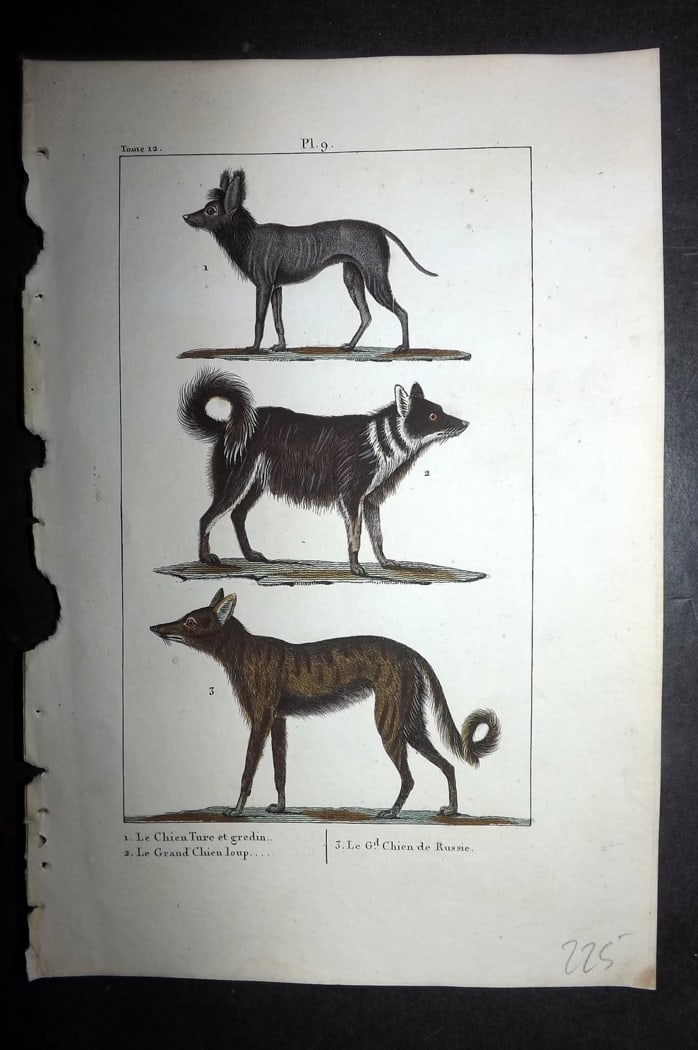 Tome 12.
Pl. 9.
1
2
3
1. Le Chien Turc et gredin..
2. Le Grand Chien loup....
3. Le Gd. Chien de Russie.
225